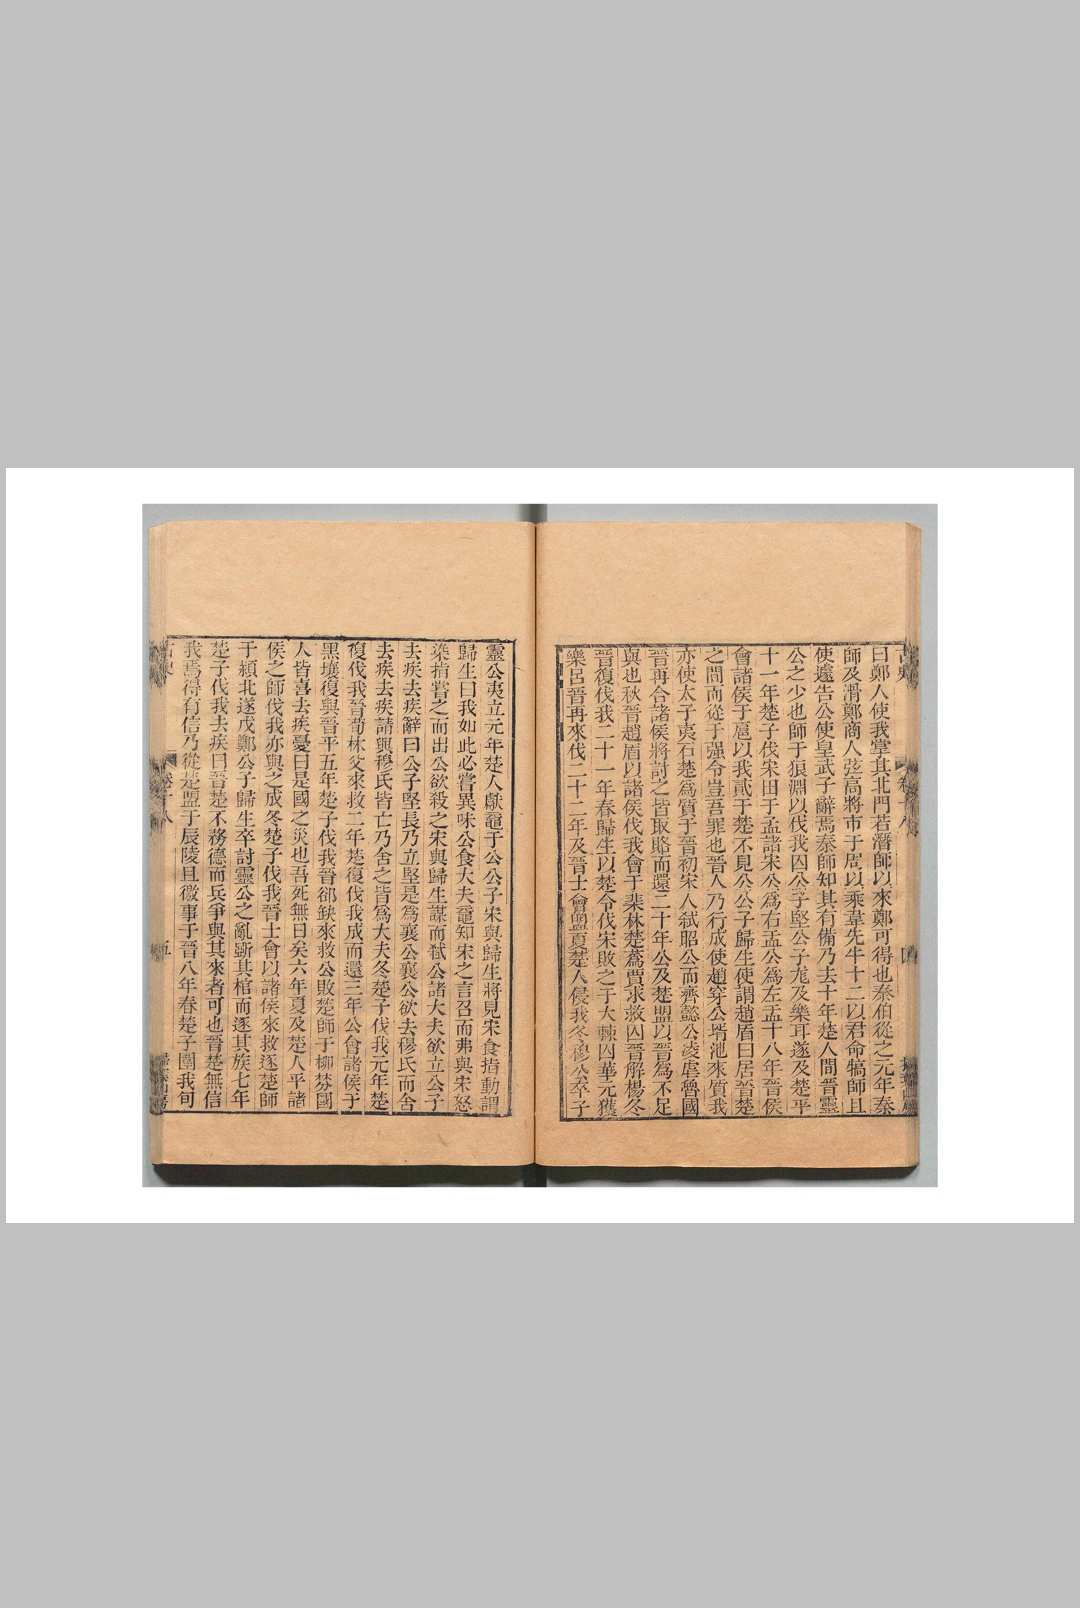 曰鄭人使我掌其北門若潛師以來鄭可得也秦伯從之元年秦
師及滑鄭商人弦高將市于周以乘韋先牛十二以君命犒師且
使遽告公使皇武子辭焉秦師知其有備乃去十年楚人間晉靈
公之少也師于狼淵以伐我囚公子堅公子尨及樂耳遂及楚平
十一年楚子伐宋田于孟諸宋公為右盂公為左盂十八年晉侯
會諸侯于扈以我貳于楚不見公公子歸生使謂趙盾曰居晉楚
之間而從于强令豈吾罪也晉人乃行成使趙穿公壻池來質我
亦使太子夷石楚為質于晉初宋人弒昭公而齊懿公凌虐魯國
晉再合諸侯將討之皆取賂而還二十年公及楚盟以晉為不足
與也秋晉趙盾以諸侯伐我會于棐林楚蒍賈求救囚晉解楊冬
晉復伐我二十一年春歸生以楚令伐宋敗之于大棘囚華元獲
樂呂晉再來伐二十二年及晉士會盟夏楚人侵我冬穆公卒子
靈公夷立元年楚人獻黿于公公子宋與歸生將見宋食指動謂
歸生曰我如此必嘗異味公食大夫黿知宋之言召而弗與宋怒
染指嘗之而出公欲殺之宋與歸生謀而弒公諸大夫欲立公子
去疾去疾辭曰公子堅長乃立堅是為襄公襄公欲去穆氏而舍
去疾去疾請與穆氏皆亡乃舍之皆為大夫冬楚子伐我元年楚
復伐我晉荀林父來救二年楚復伐我成而還三年公會諸侯于
黑壤復與晉平五年楚子伐我晉郤缺來救公敗楚師于柳棼國
人皆喜去疾憂曰是國之災也吾死無日矣六年夏及楚人平諸
侯之師伐我亦與之成冬楚子伐我晉士會以諸侯來救逐楚師
于潁北遂戍鄭公子歸生卒討靈公之亂斲其棺而逐其族七年
楚子伐我去疾曰晉楚不務德而兵爭與其來者可也晉楚無信
我焉得有信乃從楚盟于辰陵且徼事于晉八年春楚子圍我旬